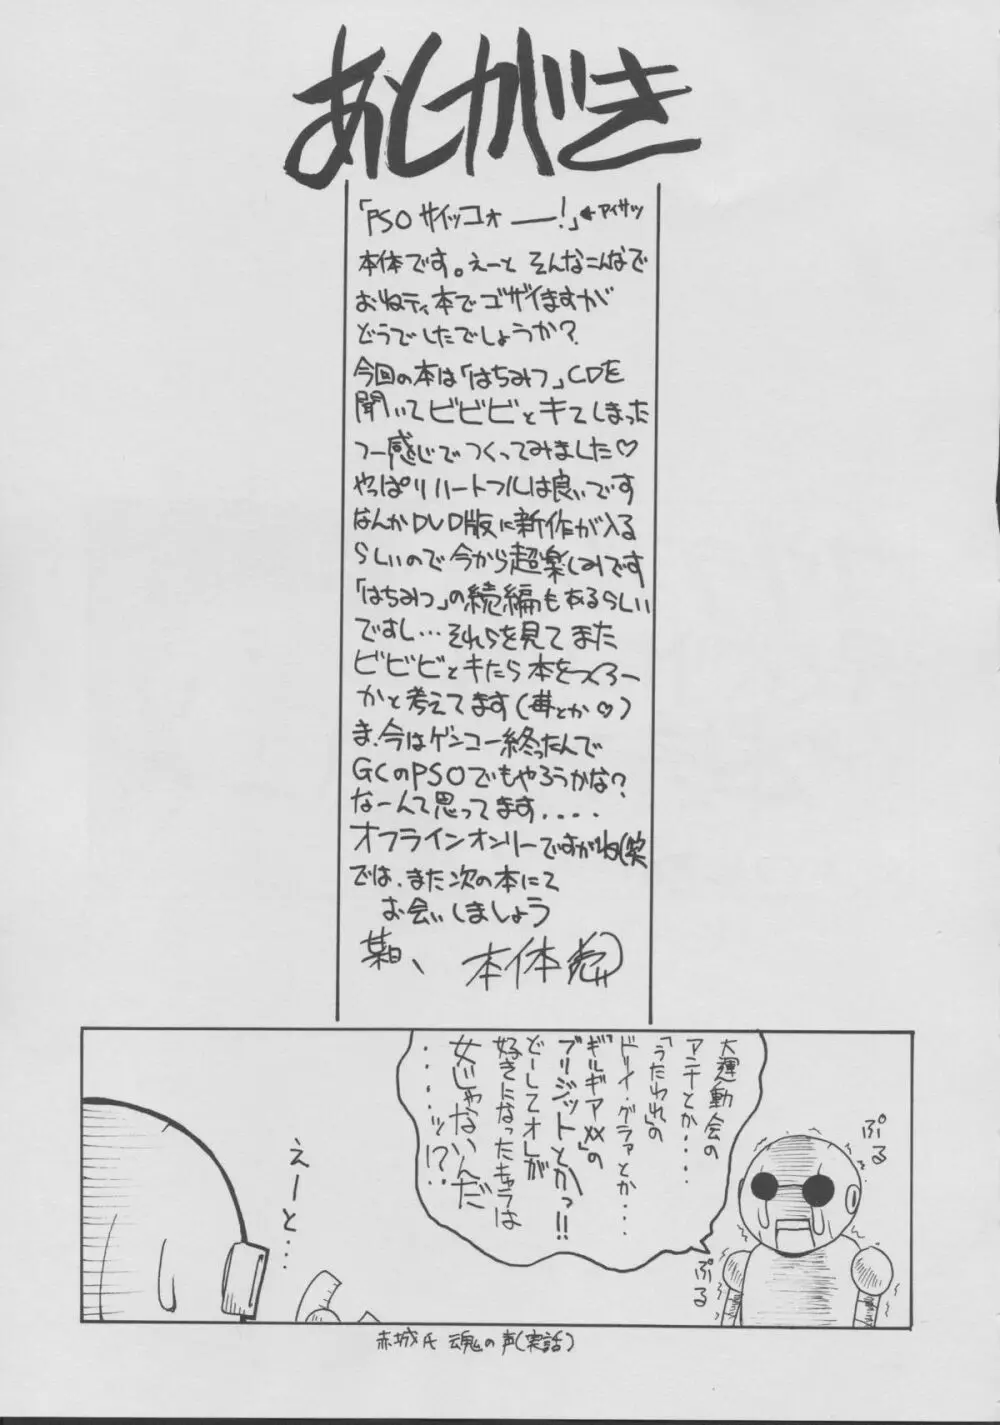 あとがき
「PSO サイッコォ――!」←アイサツ
本体です。えーと そんなこんなで
おねティ本でゴザイますが
どうでしたでしょうか?
今回の本は「はちみつ」CDを
聞いてビビビとキてしまった
つー感じでつくってみました♡
やっぱりハートフルは良いです
なんかDVD版に新作が入る
らしいので今から超楽しみです
「はちみつ」の続編もあるらしい
ですし…それらを見てまた
ビビビとキたら本をつくろー
かと考えてます(苺とか♡)
ま、今はゲンコー終ったんで
GCのPSOでもやろうかな?
なーんて思ってます....
オフラインオンリーですがね(笑
では、また次の本にて
お会いしましょう
某日、 本体
大運動会の
アンナとか・・・・
「うたわれ」の
ドリィ・グラァとか・・・
「ギルギアXX」の
ブリジットとかっ!!
どーしてオレが
好きになったキャラは
女じゃないんだ
・・・・・ッ!?
ぷる
ぷる
えーと・・・
赤城氏 魂の声(実話)